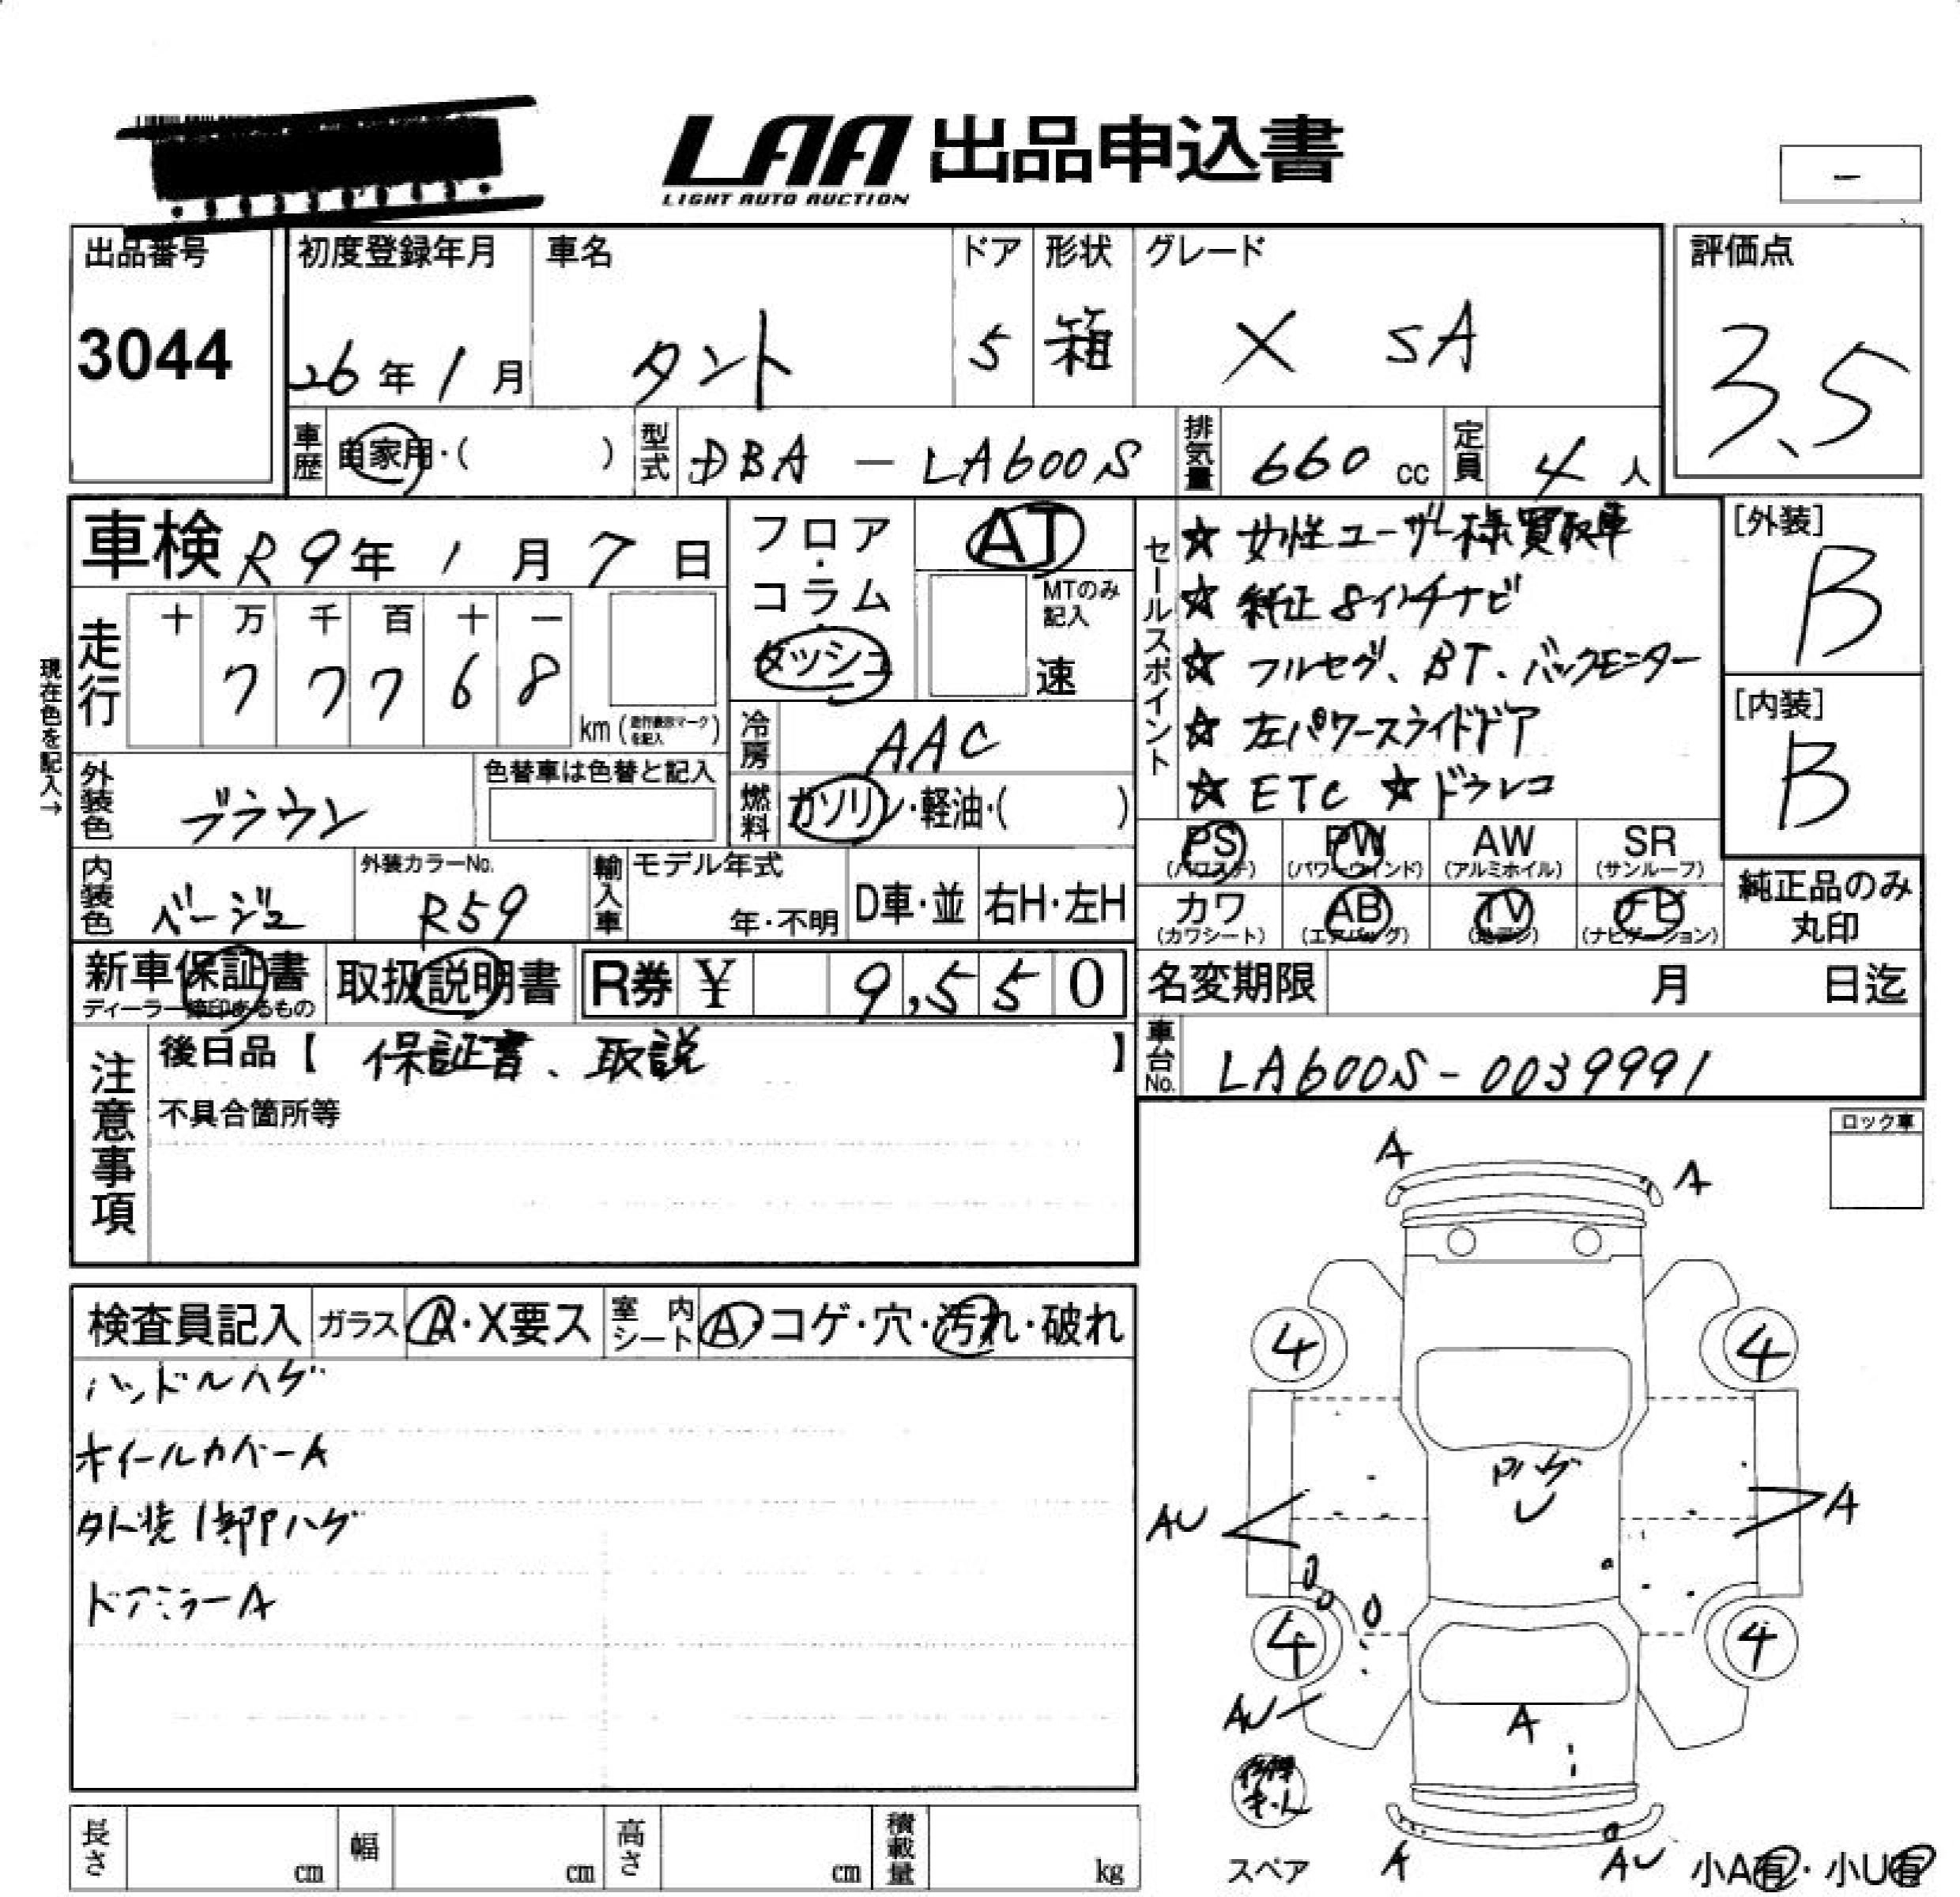 LAA 出品申込書
LIGHT AUTO AUCTION
ー
出品番号 初度登録年月 車名 ドア 形状 グレード 評価点
3044 26年1月 タント 5 箱 X SA 3.5
車歴 自家用・( ) 型式 DBA - LA600S 排気量 660 cc 定員 4 人
車検 R9年1月7日 フロア・コラム ダッシュ AT
MTのみ記入 速
セールスポイント
☆ 女性ユーザー様買取車
☆ 純正8インチナビ
☆ フルセグ、BT、バックモニター
☆ 左パワースライドドア
☆ ETC ☆ドラレコ
[外装] B
[内装] B
現在色を記入→
走行 十 万 千 百 十 一
7 7 7 6 8 km (走行表示マークを記入)
冷房 AAC
外装色 ブラウン 色替車は色替と記入 燃料 ガソリン・軽油・( )
PS (パワステ) PW (パワーウインド) AW (アルミホイル) SR (サンルーフ)
カワ (カワシート) AB (エアバッグ) TV (地デジ) ナビ (ナビゲーション)
純正品のみ丸印
内装色 ベージュ 外装カラーNo. R59 輸入車 モデル年式 年・不明 D車・並 右H・左H
新車保証書 取扱説明書 R券 ¥ 9,550 名変期限 月 日迄
ディーラー捺印あるもの
車台No. LA600S-0039991
注意事項
後日品【 保証書、取説 】
不具合箇所等
ロック車
検査員記入 ガラス A・X要ス 室内シート A・コゲ・穴・汚れ・破れ
ハンドルハゲ
ホイールカバーA
外装1部ハゲ
ドアミラーA
A A
4 4
ハゲ
U
AU A
4 4
AU
A
スペア A AU 小A有・小U有
長さ cm 幅 cm 高さ cm 積載量 kg